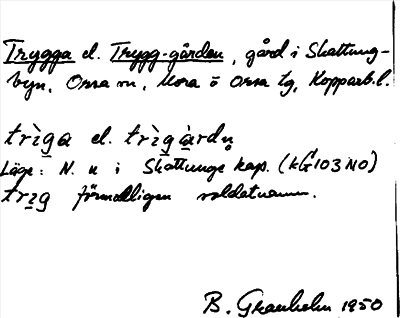 Trygga el. Trygg-gården, gård i Skattung-
byn, Orsa sn, Mora o Orsa tg, Kopparb. l.
trìga el. trìgàrdn̥
Läge: N. u i Skattunge kap. (kG 103 NO)
trig förmodligen soldatnamn.
B. Granholm 1950